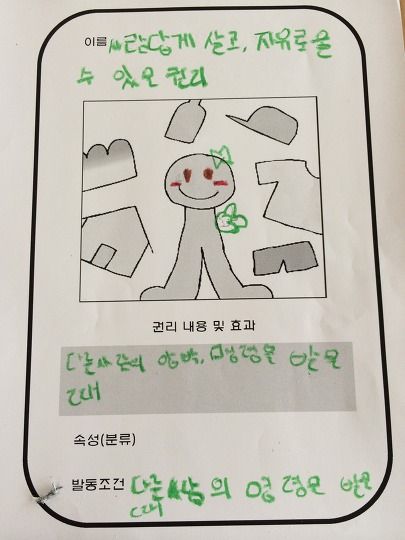 이름 사람답게 살고, 자유로울
수 있은 권리
권리 내용 및 효과
다른사람의 압박, 명령을 받을
때
속성(분류)
발동조건 다른 사람의 명령은 받은
때